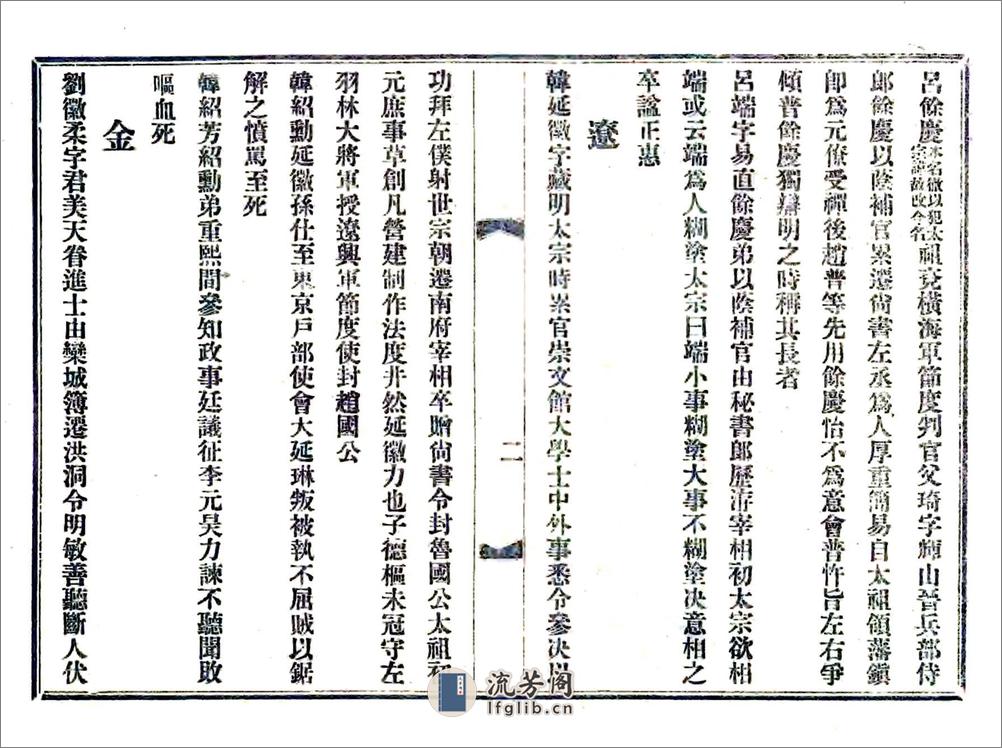 呂餘慶本名徹以犯太祖諱故改今名祖兗橫海軍節度判官父琦字輝山晉兵部侍
郎餘慶以陰補官累遷尙書左丞爲人厚重簡易自太祖領藩鎭
卽爲元僚受禪後趙普等先用餘慶恬不爲意會普忤旨左右爭
傾普餘慶獨辯明之時稱其長者
呂端字易直餘慶弟以陰補官由秘書郞歷游宰相初太宗欲相
端或云端爲人糊塗太宗曰端小事糊塗大事不糊塗決意相之
卒謚正惠
遼
韓延徽字藏明太宗時累官崇文館大學士中外事悉令參決以
二
功拜左僕射世宗朝遷南府宰相卒贈尙書令封魯國公太祖初
元庶事草創凡營建制作法度井然延徽力也子德樞未冠守左
羽林大將軍授遼興軍節度使封趙國公
韓紹勳延徽孫仕至東京戶部使會大延琳叛被執不屈賊以鋸
解之憤罵至死
韓紹芳紹勳弟重熙間參知政事廷議征李元昊力諫不聽聞敗
嘔血死
金
劉徽柔字君美天眷進士由欒城簿遷洪洞令明敏善聽斷人伏
流芳阁
lfglib.cn